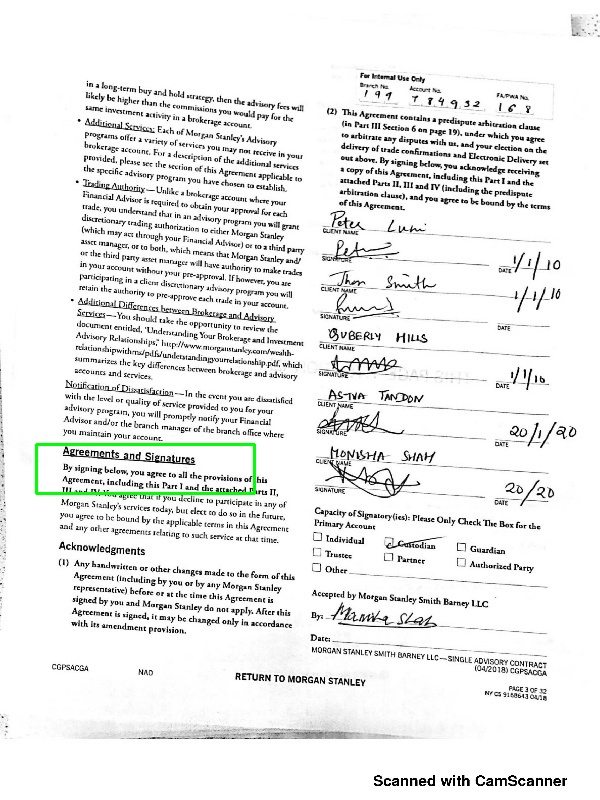 in a long-term buy and hold strategy, then the advisory fees will
likely be higher than the commissions you would pay for the
same investment activity in a brokerage account.
• Additional Services: Each of Morgan Stanley's Advisory
programs offer a variety of services you may not receive in your
brokerage account. For a description of the additional services
provided, please see the section of this Agreement applicable to
the specific advisory program you have chosen to establish.
• Trading Authority—Unlike a brokerage account where your
Financial Advisor is required to obtain your approval for each
trade, you understand that in an advisory program you will grant
discretionary trading authorization to either Morgan Stanley
(which may act through your Financial Advisor) or to a third party
asset manager, or to both, which means that Morgan Stanley and/
or the third party asset manager will have authority to make trades
in your account without your pre-approval. If however, you are
participating in a client discretionary advisory program you will
retain the authority to pre-approve each trade in your account.
• Additional Differences between Brokerage and Advisory
Services—You should take the opportunity to review the
document entitled, "Understanding Your Brokerage and Investment
Advisory Relationships," http://www.morganstanley.com/wealth-
relationshipwithms/pdfs/understandingyourrelationship.pdf, which
summarizes the key differences between brokerage and advisory
accounts and services.
Notification of Dissatisfaction—In the event you are dissatisfied
with the level or quality of service provided to you for your
advisory program, you will promptly notify your Financial
Advisor and/or the branch manager of the branch office where
you maintain your account.
Agreements and Signatures
By signing below, you agree to all the provisions of this
Agreement, including this Part I and the attached Parts II,
III and IV. You agree that if you decline to participate in any of
Morgan Stanley's services today, but elect to do so in the future,
you agree to be bound by the applicable terms in this Agreement
and any other agreements relating to such service at that time.
Acknowledgments
(1) Any handwritten or other changes made to the form of this
Agreement (including by you or by any Morgan Stanley
representative) before or at the time this Agreement is
signed by you and Morgan Stanley do not apply. After this
Agreement is signed, it may be changed only in accordance
with its amendment provision.
For Internal Use Only
Branch No. Account No. FA/PWA No.
197 784932 168
(2) This Agreement contains a predispute arbitration clause
(in Part III Section 6 on page 19), under which you agree
to arbitrate any disputes with us, and your election on the
delivery of trade confirmations and Electronic Delivery set
out above. By signing below, you acknowledge receiving
a copy of this Agreement, including this Part I and the
attached Parts II, III and IV (including the predispute
arbitration clause), and you agree to be bound by the terms
of this Agreement.
Peter
CLIENT NAME
SIGNATURE DATE 1/1/10
Smith 1/1/10
CLIENT NAME
SIGNATURE DATE
BUBERLY HILLS
CLIENT NAME
SIGNATURE DATE 1/1/10
TANDON
CLIENT NAME
SIGNATURE DATE 20/1/20
MONISHA SHAH
CLIENT NAME
SIGNATURE DATE 20/20
Capacity of Signatory(ies): Please Only Check The Box for the
Primary Account
Individual Custodian Guardian
Trustee Partner Authorized Party
Other
Accepted by Morgan Stanley Smith Barney LLC
By:
Date:
MORGAN STANLEY SMITH BARNEY LLC—SINGLE ADVISORY CONTRACT
(04/2018) CGPSACGA
CGPSACGA NAO RETURN TO MORGAN STANLEY
PAGE 3 OF 32
NY CS 9168643 04/18
Scanned with CamScanner